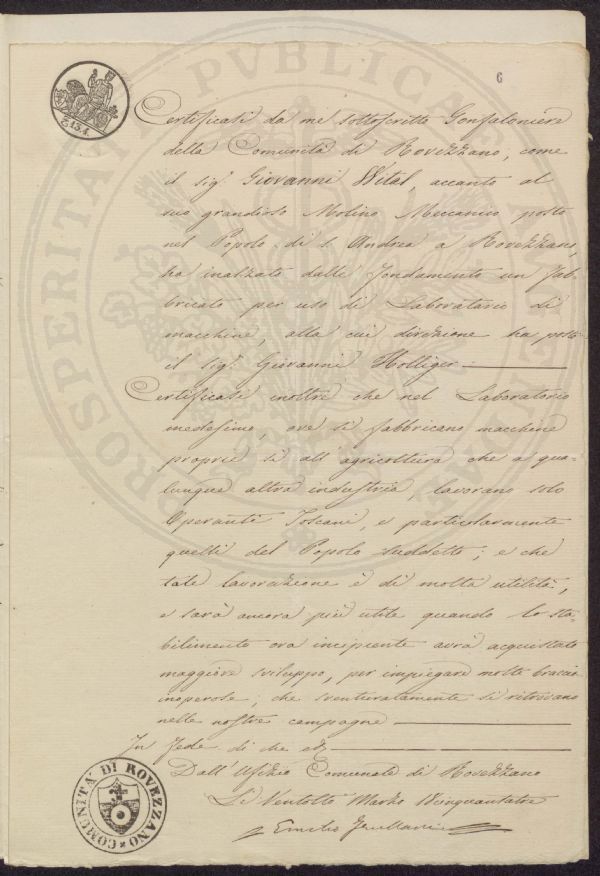 6
Certificasi da me sottoscritto Gonfaloniere
della Comunità di Rovezzano, come
il sig.r Giovanni Wital, accanto al
suo grandioso Molino Meccanico posto
nel Popolo di S. Andrea a Rovezzano,
ha inalzato dalle fondamenta un fab-
bricato per uso di Laboratorio di
macchine, alla cui direzione ha posto
il sig.r Giovanni Holliger
Certificasi inoltre che nel Laboratorio
medesimo, ove si fabbricano macchine
proprie sì all'agricoltura che a qua-
lunque altra industria, lavorano solo
Operanti Toscani, e particolarmente
quelli del Popolo suddetto; e che
tale lavorazione è di molta utilità,
e sarà ancora più utile quando lo sta-
bilimento ora incipiente avrà acquistato
maggiore sviluppo, per impiegare molte braccia
inoperose, che sventuratamente si ritrovano
nelle nostre campagne
In fede di che
Dall'Ufizio Comunale di Rovezzano
Li Ventotto Marzo
Emilio
COMUNITA' DI ROVEZZANO
PROSPERITATI PVBLICAE AVGENDAE